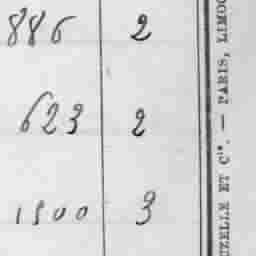 886 2
623 2
1500 3
UZELLE ET Cie. — PARIS, LIMOG